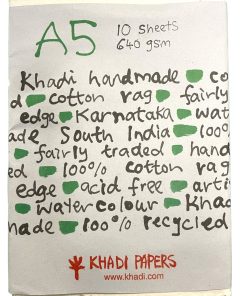 A5 10 sheets
640 gsm
Khadi handmade co
d cotton rag fairly
edge Karnataka wat
ade South India 100%
fairly traded hand
ed 100% cotton rag
edge acid free arti
water colour Khad
made 100% recycled
KHADI PAPERS
www.khadi.com